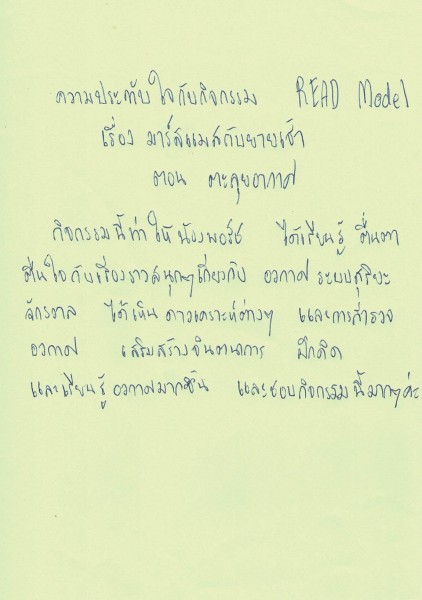 ความประทับใจกับกิจกรรม READ Model
เรื่อง มาร์สแมสกับยายเช้า
ตอน ตะลุยอวกาศ
กิจกรรมนี้ทำให้น้องพอร์ช ได้เรียนรู้ ตื่นตา
ตื่นใจกับเรื่องราวสนุกๆเกี่ยวกับ อวกาศ ระบบสุริยะ
จักรวาล ได้เห็นดาวเคราะห์ต่างๆ และการสำรวจ
อวกาศ เสริมสร้างจินตนาการ ฝึกคิด
และเรียนรู้ อวกาศมากขึ้น และชอบกิจกรรมนี้มากๆค่ะ